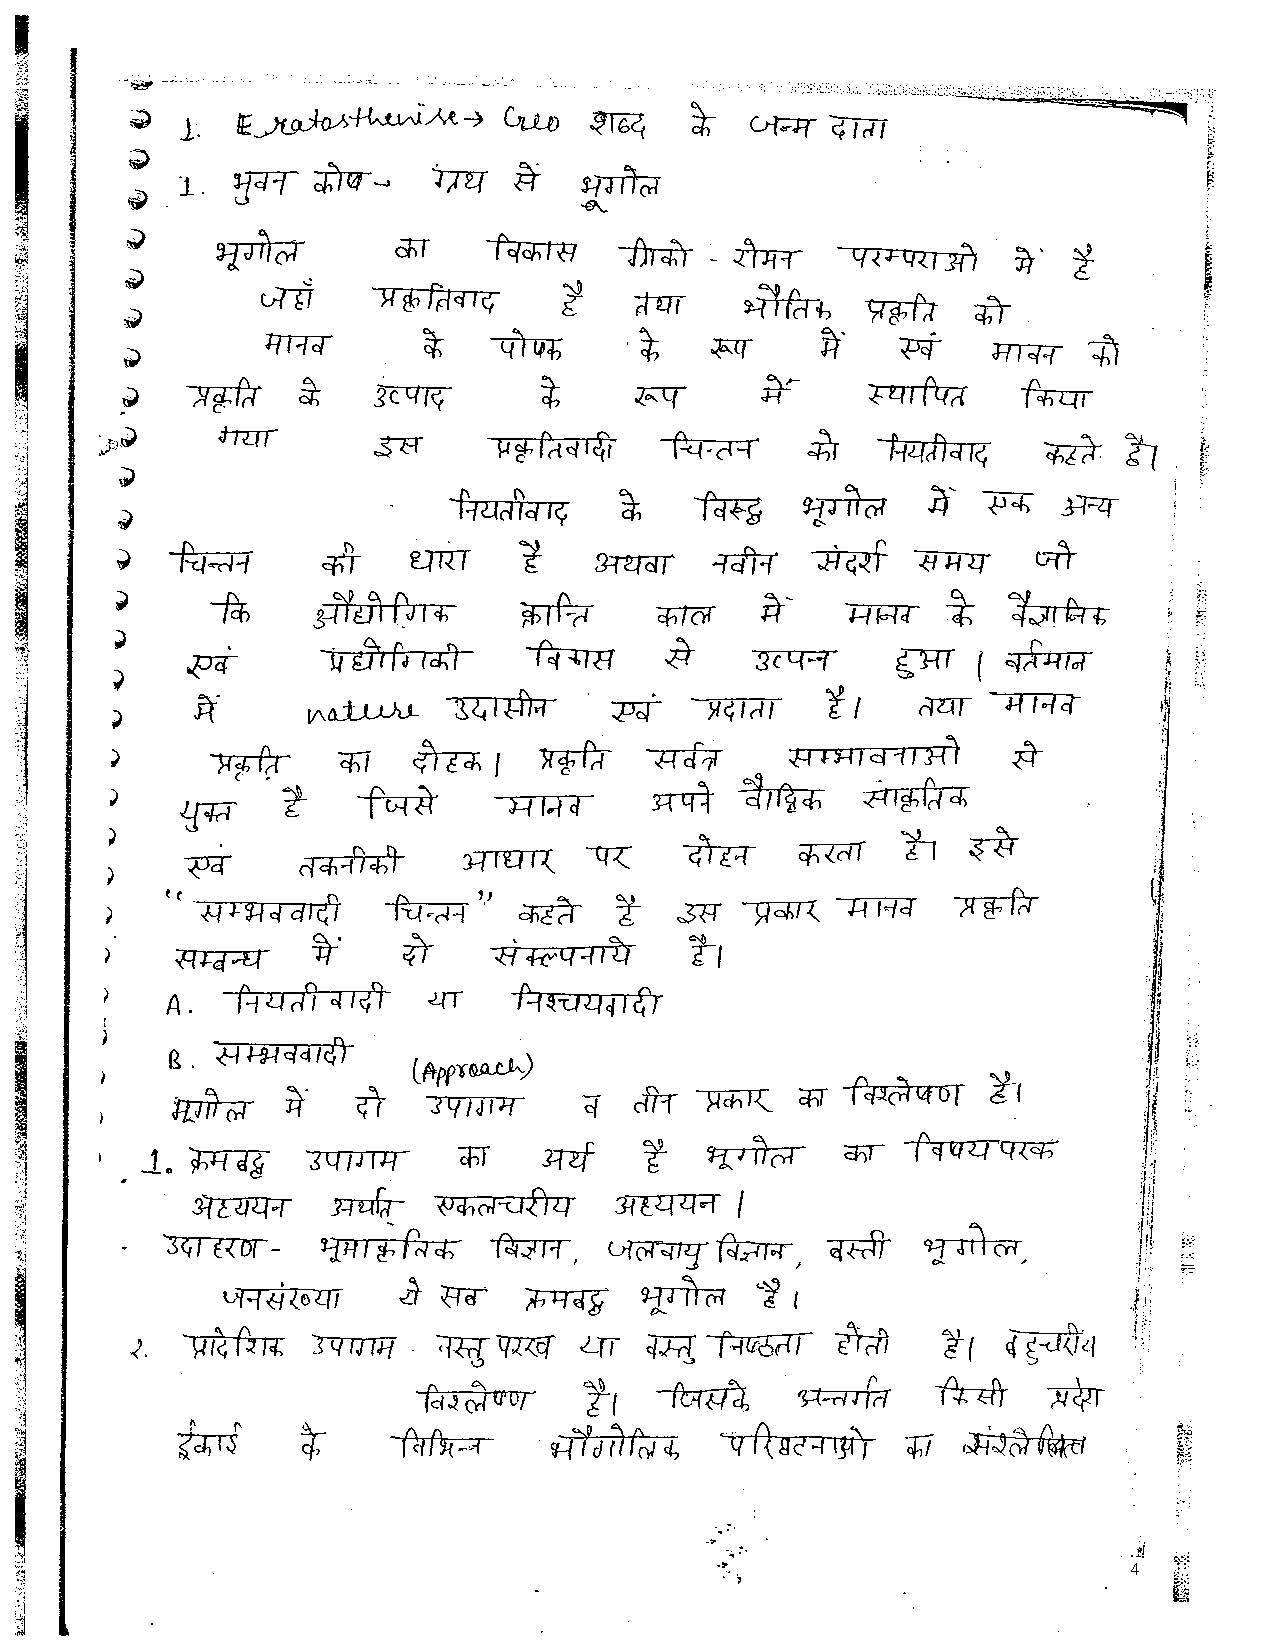 1. Eratosthenise → Geo शब्द के जन्म दाता
1. भुवन कोष → ग्रंथ से भूगोल
भूगोल का विकास ग्रिको - रोमन परम्पराओ में है
जहाँ प्रकृतिवाद है तथा भौतिक प्रकृति को
मानव के पोषक के रूप में एवं मावन को
प्रकृति के उत्पाद के रूप में स्थापित किया
गया इस प्रकृतिवादी चिन्तन को नियतीवाद कहते है।
नियतीवाद के विरूद्ध भूगोल में एक अन्य
चिन्तन की धारा है अथवा नवीन संदर्श समय जो
कि औद्योगिक क्रान्ति काल में मानव के वैज्ञानिक
एवं प्रद्योगिकी विकास से उत्पन्न हुआ। वर्तमान
में nature उदासीन एवं प्रदाता है। तथा मानव
प्रकृति का दोहक। प्रकृति सर्वत्र सम्भावनाओ से
युक्त है जिसे मानव अपने बौद्धिक सांकृतिक
एवं तकनीकी आधार पर दोहन करता है। इसे
"सम्भववादी चिन्तन" कहते है इस प्रकार मानव प्रकृति
सम्बन्ध में दो संकल्पनाये है।
A. नियतीवादी या निश्चयवादी
B. सम्भववादी
(Approach)
भूगोल में दो उपागम व तीन प्रकार का विश्लेषण है।
1. क्रमबद्ध उपागम का अर्थ है भूगोल का विषयपरक
अध्ययन अर्थात एकलचरीय अध्ययन।
उदाहरण - भूमाकृतिक विज्ञान, जलवायु विज्ञान, बस्ती भूगोल,
जनसंख्या ये सब क्रमबद्ध भूगोल है।
2. प्रादेशिक उपागम वस्तु परख या वस्तु निष्ठता होती है। बहुचरीय
विश्लेषण है। जिसके अन्तर्गत किसी प्रदेश
ईकाई के विभिन्न भौगोलिक परिघटनाओ का
4